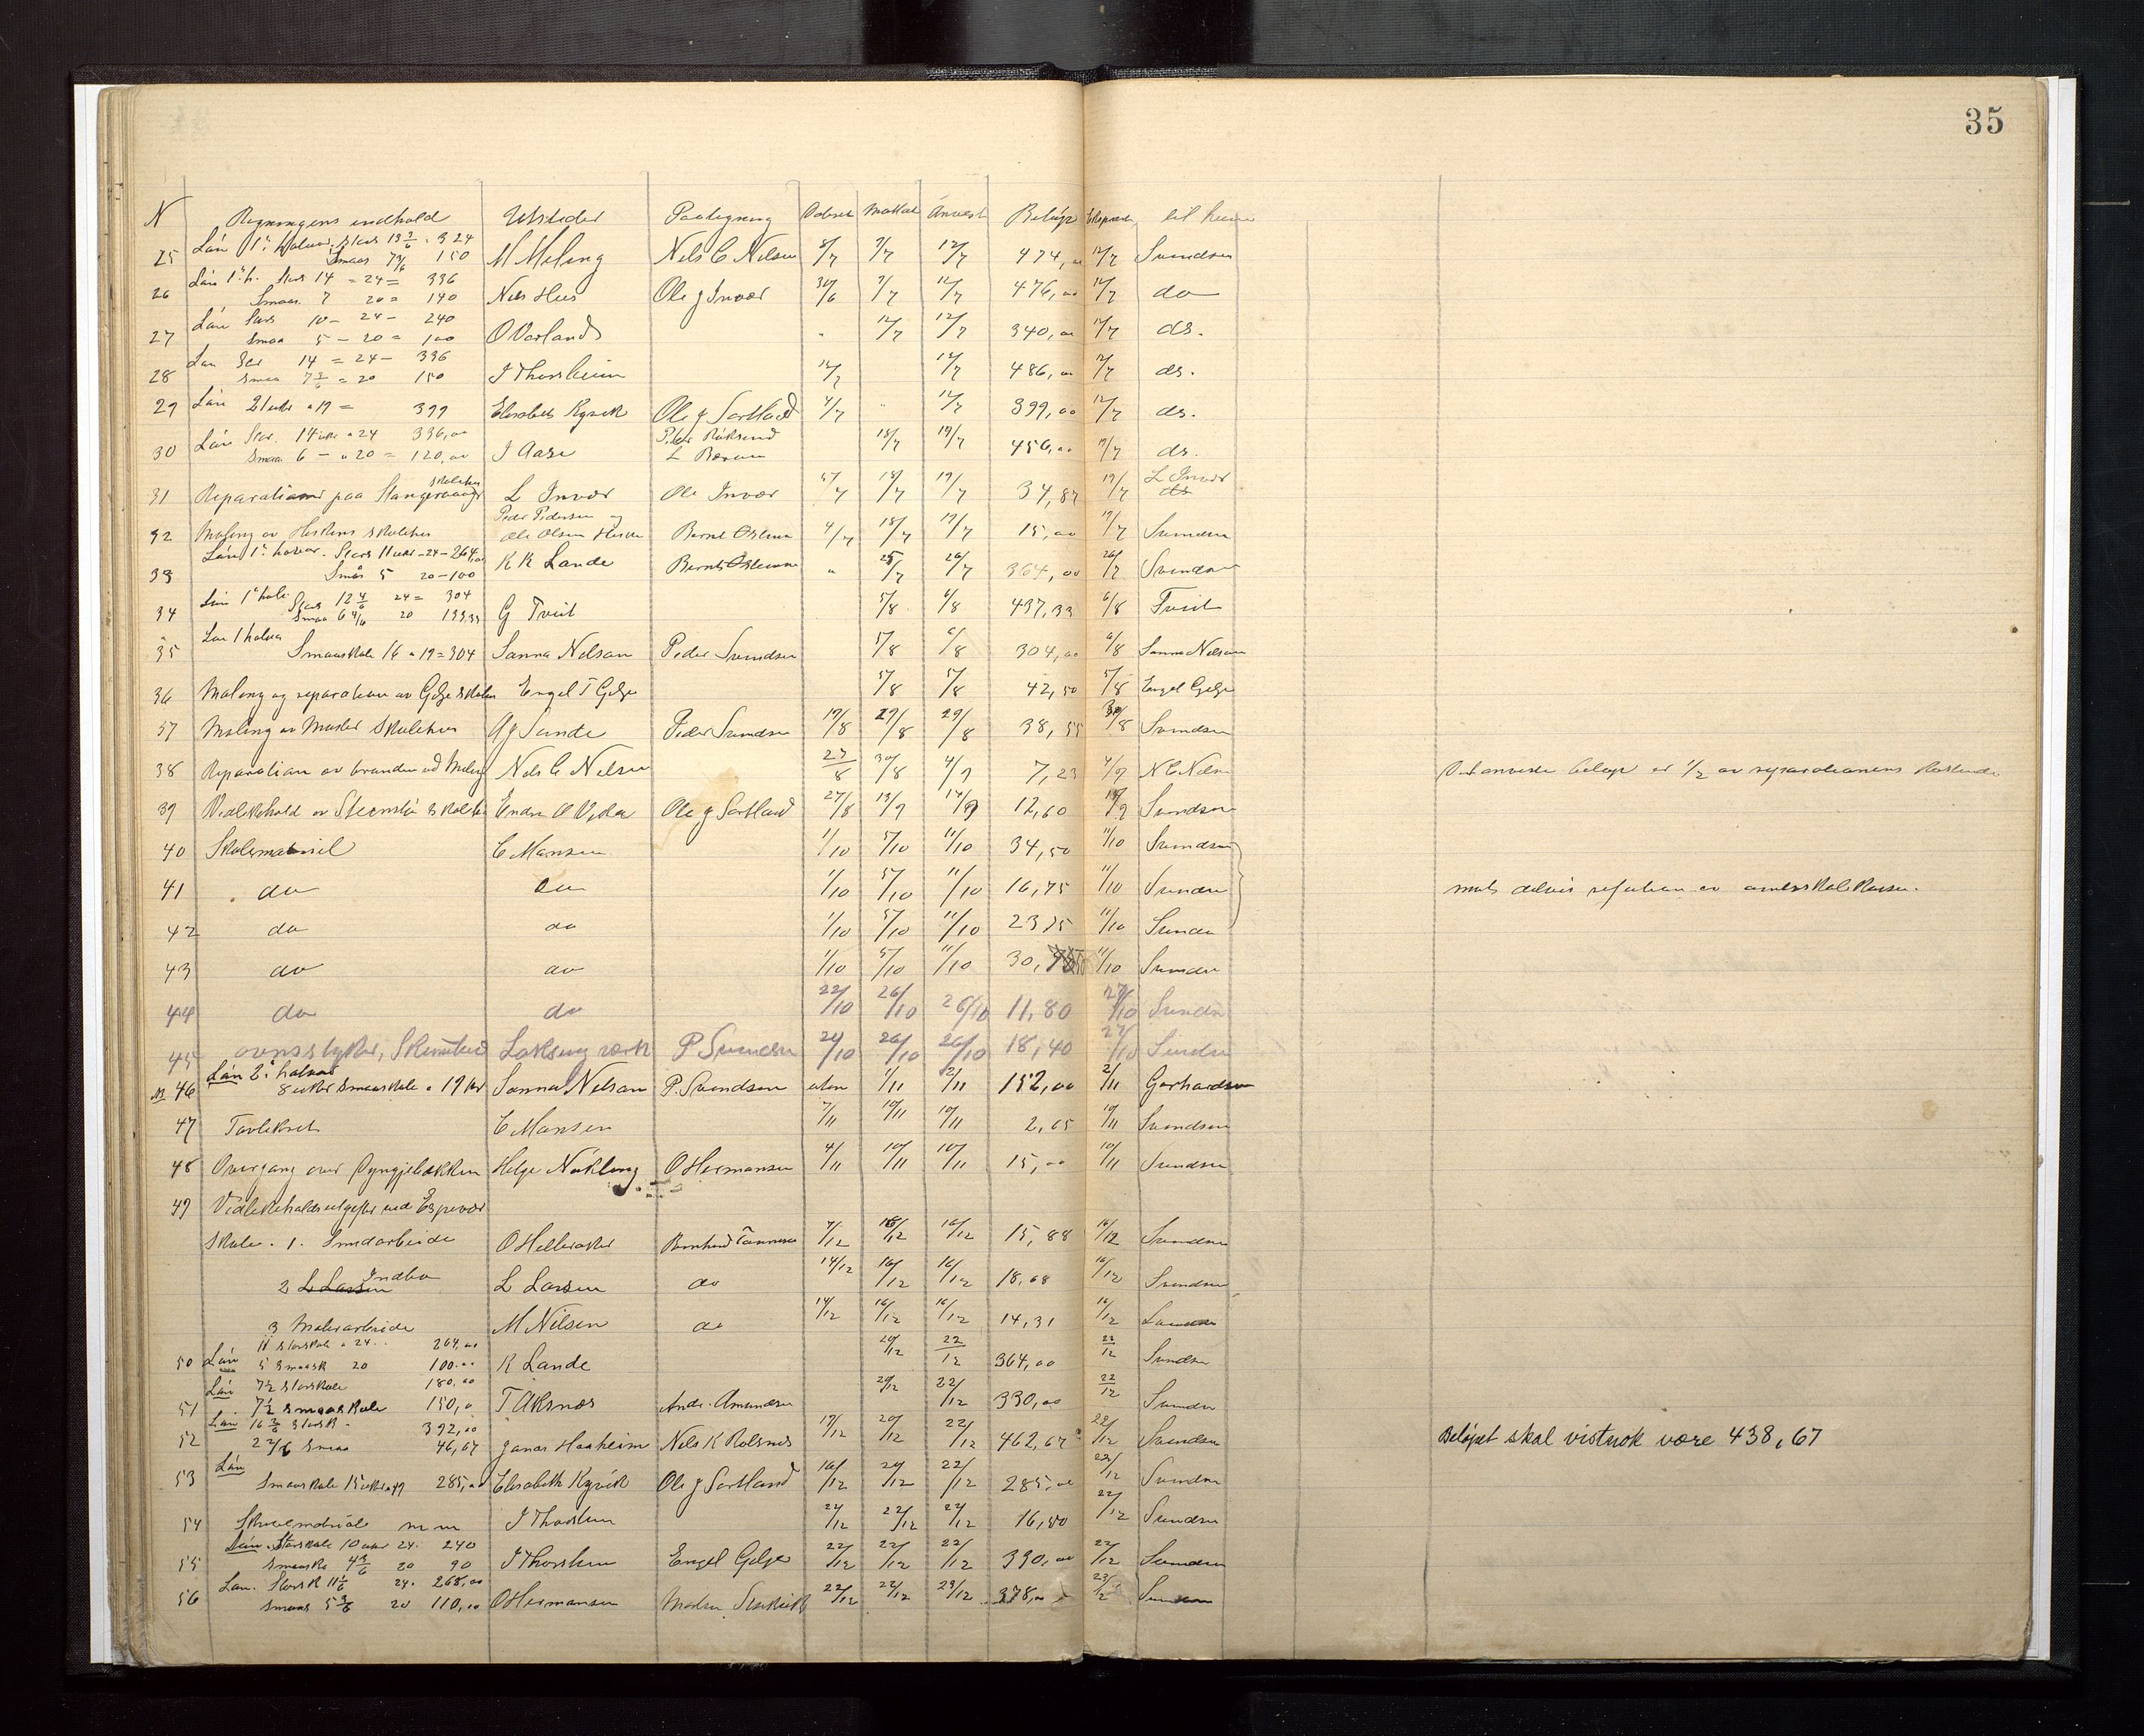 35
N Regningens indhold Utsteder Paategning Dateret Mottat Anvist Beløp Ekspedert til hvem
Løn 1ste halvaar. Stors 13 3/6 . 324
25 Smaas 7 3/6 150 M Meling Nels C Nelsen 8/7 9/7 12/7 474, 12/7 Svendsen
Løn 1ste h. Stors 14 - 24 = 336
26 Smaas. 7 20 = 140 Nils Hus Ole J Invær 30/6 9/7 12/7 476,00 12/7 do
Løn Stors 10 - 24 - 240
27 Smaa 5 - 20 = 100 O Vorland " 12/7 12/7 340,00 12/7 do.
Løn Stor 14 = 24 - 336
28 Smaa 7 3/6 = 20 150 I Thorsheim 12/7 12/7 486,00 12/7 do.
29 Løn 21 uker a 19 = 399 Elisabeth Kyvik Ole J Sortland 4/7 " 12/7 399,00 12/7 do.
Løn Stor. 14 uker a 24 336,00 Peder
30 Smaa 6 - a 20 = 120,00 I Aase L 18/7 19/7 456,00 19/7 do.
31 Reparationer paa Stangervaag skolehus L Invær Ole Invær 5/7 18/7 19/7 34,87 19/7 L Invær
Peder Pedersen og
32 Maling av Hiskens skolehus Ole Olsen Hisken Bernt Østensen 4/7 18/7 19/7 15,00 19/7 Svendsen
Løn 1ste halvaar. Stors 11 uker - 24 - 264,00
33 Smås 5 20 - 100 K K Lande Bernt Østensen " 25/7 26/7 364,00 26/7 Svendsen
Løn 1ste halv. Stors 12 4/6 24 = 304
34 Smaa 6 4/6 20 133,33 G Tveit 5/8 6/8 437,33 6/8 Tveit
Løn 1 halvaar
35 Smaaskole 16 a 19 = 304 Sanna Nelsan Peder Svendsen 5/8 6/8 304,00 6/8 Sanna Nelsan
36 Maling og reparation av Gilje skolehus Engel T Gilje 5/8 5/8 42,50 5/8 Engel Gilje
37 Maling av Møster skolehus A J Sande Peder Svendsen 19/8 29/8 29/8 38,55 30/8 Svendsen
38 Reparation av brønden ved Meling Nels C Nelsen 27/8 30/8 4/9 7,23 4/9 N C Nelsen Det anviste beløp er 1/2 av reparationens kostende
39 Vedlikehold av Steensbø skolehus Endre O Vika Ole J Sortland 27/8 13/9 14/9 12,60 14/9 Svendsen
40 Skolemateriel C Mansen 1/10 5/10 11/10 34,50 11/10 Svendsen
41 do do 1/10 5/10 11/10 16,75 11/10 Svendsen mots delvis refusion av amtsskolekassen.
42 do do 1/10 5/10 11/10 23,75 11/10 Svendsen
43 do do 1/10 5/10 11/10 30, 11/10 Svendsen
44 do do 22/10 26/10 26/10 11,80 27/10 Svendsen
45 ovnsstykker, Laksevaag værk P Svendsen 24/10 26/10 26/10 18,40 27/10 Svendsen
Løn 2. halvaar
No 46 8 uker smaaskole a 19 kr Sanna Nelsan P. Svendsen uten 1/11 2/11 152,00 2/11 Gerhardsen
47 Tavlekrit C Mansen 7/11 10/11 10/11 2,65 10/11 Svendsen
48 Overgang over Dyngjebækken Helge Nøkling O Hermansen 4/11 10/11 10/11 15,00 10/11 Svendsen
49 Vedlikeholdsutgifter ved Espevær
skole. 1. Smedarbeide O Hellesaker Bernhard Tønnesen 7/12 16/12 16/12 15,88 16/12 Svendsen
2 L Larsen Indbo L Larsen do 14/12 16/12 16/12 18,68 16/12 Svendsen
3 Malerarbeide M Nilsen do 14/12 16/12 16/12 14,31 16/12
11 storskole a 24.. 264,00
50 Løn 5 smaask 20 100.00 K Lande 20/12 22/12 364,00 22/12 Svendsen
Løn 7 1/2 storskole 180,00
51 7 1/2 smaaskole 150,0 T Aksnæs Andr. Amundsen 20/12 22/12 330,00 22/12 Svendsen
Løn 16 2/6 storsk. 392,00
52 2 2/6 smaa 46,67 Jonas Haaheim Nels K Rolsnes 19/12 20/12 22/12 462,67 22/12 Svendsen Beløpet skal vistnok være 438,67
Løn
53 Smaaskole 15 uker a 19 285,00 Elisabeth Kyvik Ole J Sortland 16/12 20/12 22/12 285,00 22/12 Svendsen
54 Skrivemateriale m m I Thorsheim 21/12 22/12 22/12 16,50 22/12 Svendsen
Løn. Storskole 10 uker 24. 240
55 smaasko 4 3/6 20 90 I Thorsheim Engel Gilje 22/12 22/12 22/12 330,00 22/12 Svendsen
Løn. Storsk 11 1/6 24. 268,00
56 smaas 5 3/6 20 110,00 O Hermansen 22/12 22/12 23/12 378,00 23/12 Svendsen